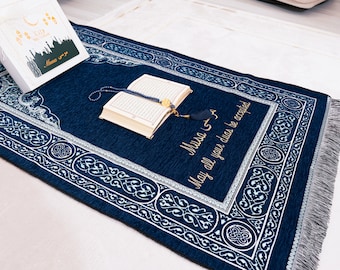 Musa موسى
May all your duas be accepted
Musa موسى